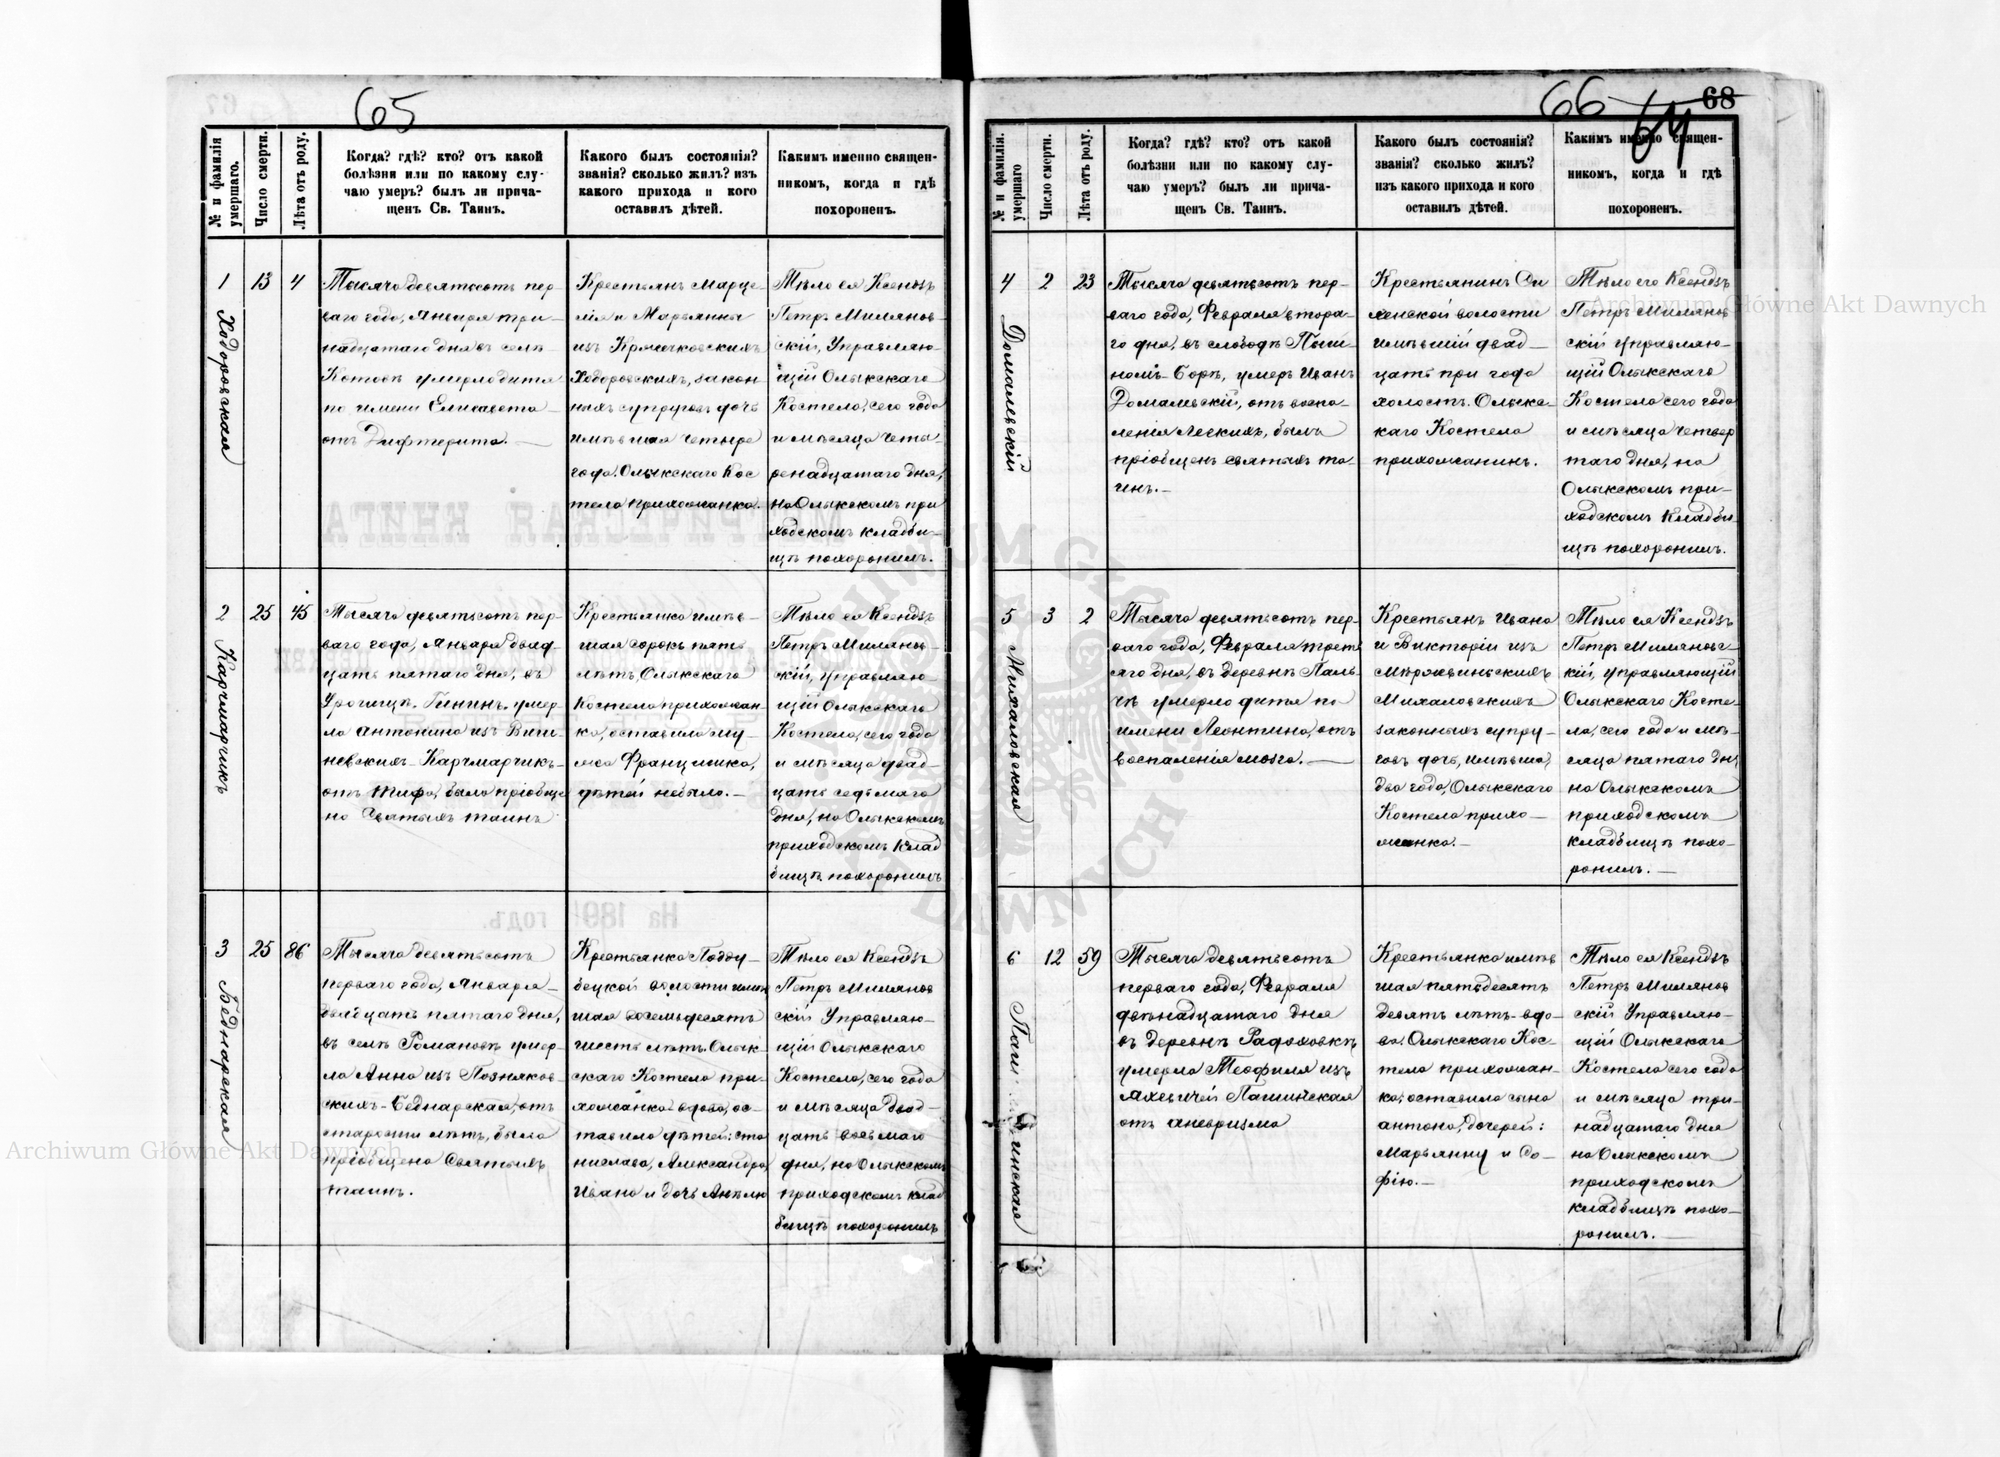 65
№ и фамилія умершаго.
Число смерти.
Лѣта отъ роду.
Когда? гдѣ? кто? отъ какой
болѣзни или по какому слу-
чаю умеръ? былъ ли прича-
щенъ Св. Таинъ.
Какого былъ состоянія?
званія? сколько жилъ? изъ
какого прихода и кого
оставилъ дѣтей.
Какимъ именно священ-
никомъ, когда и гдѣ
похороненъ.
1
Ходоровская
13
4
Тысяча девятьсотъ пер-
ваго года, Января три-
надцатаго дня въ селѣ
умерло дитя
по имени Елисавета
отъ Дифтерита. —
Крестьянъ Марце-
лія и Марьянны
изъ Крычковскихъ
Ходоровскихъ, закон
ныхъ супруговъ дочь
имѣвшая четыре
года, Олыкскаго Кос
тела прихожанка.
Тѣло ея Ксендзъ
Петръ Миляновъ-
скій, Управляю-
щій Олыкскаго
Костела, сего года
и мѣсяца четы-
ренадцатаго дня,
на Олыкскомъ при
ходскомъ кладби-
щѣ похоронилъ.
2
Карчмарчикъ
25
45
Тысяча девятьсотъ пер-
ваго года, Января двад-
цать пятаго дня, въ
Урочищѣ умер-
ла Антонина изъ Виш-
невскихъ - Карчмарчикъ-
отъ тифа, была пріобще
на Святыхъ таинъ
Крестьянка имѣв-
шая сорокъ пять
лѣтъ, Олыкскаго
Костела прихожан-
ка, оставила му-
жа Франциска,
дѣтей небыло. —
Тѣло ея Ксендзъ
Петръ Миляновъ-
скій, управляю
щій Олыкскаго
Костела, сего года
и мѣсяца двад-
цать седьмаго
дня, на Олыкскомъ
приходскомъ клад
бищѣ похоронилъ
3
Беднарская
25
86
Тысяча девятьсотъ
перваго года, Января
двадцать пятаго дня,
въ селѣ Романовѣ умер-
ла Анна изъ Позняков-
скихъ - Беднарская, отъ
старости лѣтъ, была
пріобщена Святыхъ
таинъ.
Крестьянка Подду-
бецкой волости имѣв
шая восемьдесятъ
шесть лѣтъ, Олык-
скаго Костела при-
хожанка вдова, ос-
тавила дѣтей: Ста
нислава, Александра,
Ивана и дочь Анѣлю
Тѣло ея Ксендзъ
Петръ Миляновъ
скій Управляю-
щій Олыкскаго
Костела, сего года
и мѣсяца двад-
цать восьмаго
дня, на Олыкскомъ
приходскомъ клад
бищѣ похоронилъ
66
64
68
№ и фамилія. умершаго
Число смерти.
Лѣта отъ роду.
Когда? гдѣ? кто? отъ какой
болѣзни или по какому слу-
чаю умеръ? былъ ли прича-
щенъ Св. Таинъ.
Какого былъ состоянія?
званія? сколько жилъ?
изъ какого прихода и кого
оставилъ дѣтей.
Какимъ именно священ-
никомъ, когда и гдѣ
похороненъ.
4
Домалевскій
2
23
Тысяча девятьсотъ пер-
ваго года, Февраля втора-
го дня, въ слободѣ
Борѣ, умеръ Иванъ
Домалевскій, отъ воспа-
ленія легкихъ, былъ
пріобщенъ святыхъ та-
инъ. —
Крестьянинъ Си
ленской волости
имѣвшій двад-
цать три года
холостъ. Олыкс-
каго Костела
прихожанинъ.
Тѣло его Ксендзъ
Петръ Миляновъ
скій управляю-
щій Олыкскаго
Костела сего года
и мѣсяца четвер
таго дня, на
Олыкскомъ при-
ходскомъ кладби-
щѣ похоронилъ.
5
Михаловская
3
2
Тысяча девятьсотъ пер-
ваго года, Февраля треть
яго дня, въ деревнѣ Паль-
чѣ умерло дитя по
имени Леонтина, отъ
воспаленія мозга. —
Крестьянъ Ивана
и Викторіи изъ
Михаловскихъ
законныхъ супру-
говъ дочь, имѣвшая
два года, Олыкскаго
Костела прихо-
жанка. —
Тѣло ея Ксендзъ
Петръ Миляновс-
кій, управляющій
Олыкскаго Косте-
ла, сего года и мѣ-
сяца пятаго дня
на Олыкскомъ
приходскомъ
кладбищѣ похо-
ронилъ. —
6
12
59
Тысяча девятьсотъ
перваго года, Февраля
двѣнадцатаго дня
въ деревнѣ Радоховкѣ
умерла Теофиля изъ
Яхевичей Пашинская
отъ аневризма
Крестьянка имѣв
шая пятьдесятъ
девять лѣтъ - вдо-
ва. Олыкскаго Кос-
тела прихожан-
ка, оставила сына
Антона, дочерей:
Марьянну и Со-
фію. —
Тѣло ея Ксендзъ
Петръ Миляновъ
скій Управляю-
щій Олыкскаго
Костела сего года
и мѣсяца три-
надцатаго дня
на Олыкскомъ
приходскомъ
кладбищѣ похо-
ронилъ. —
Archiwum Główne Akt Dawnych
Archiwum Główne Akt Dawnych